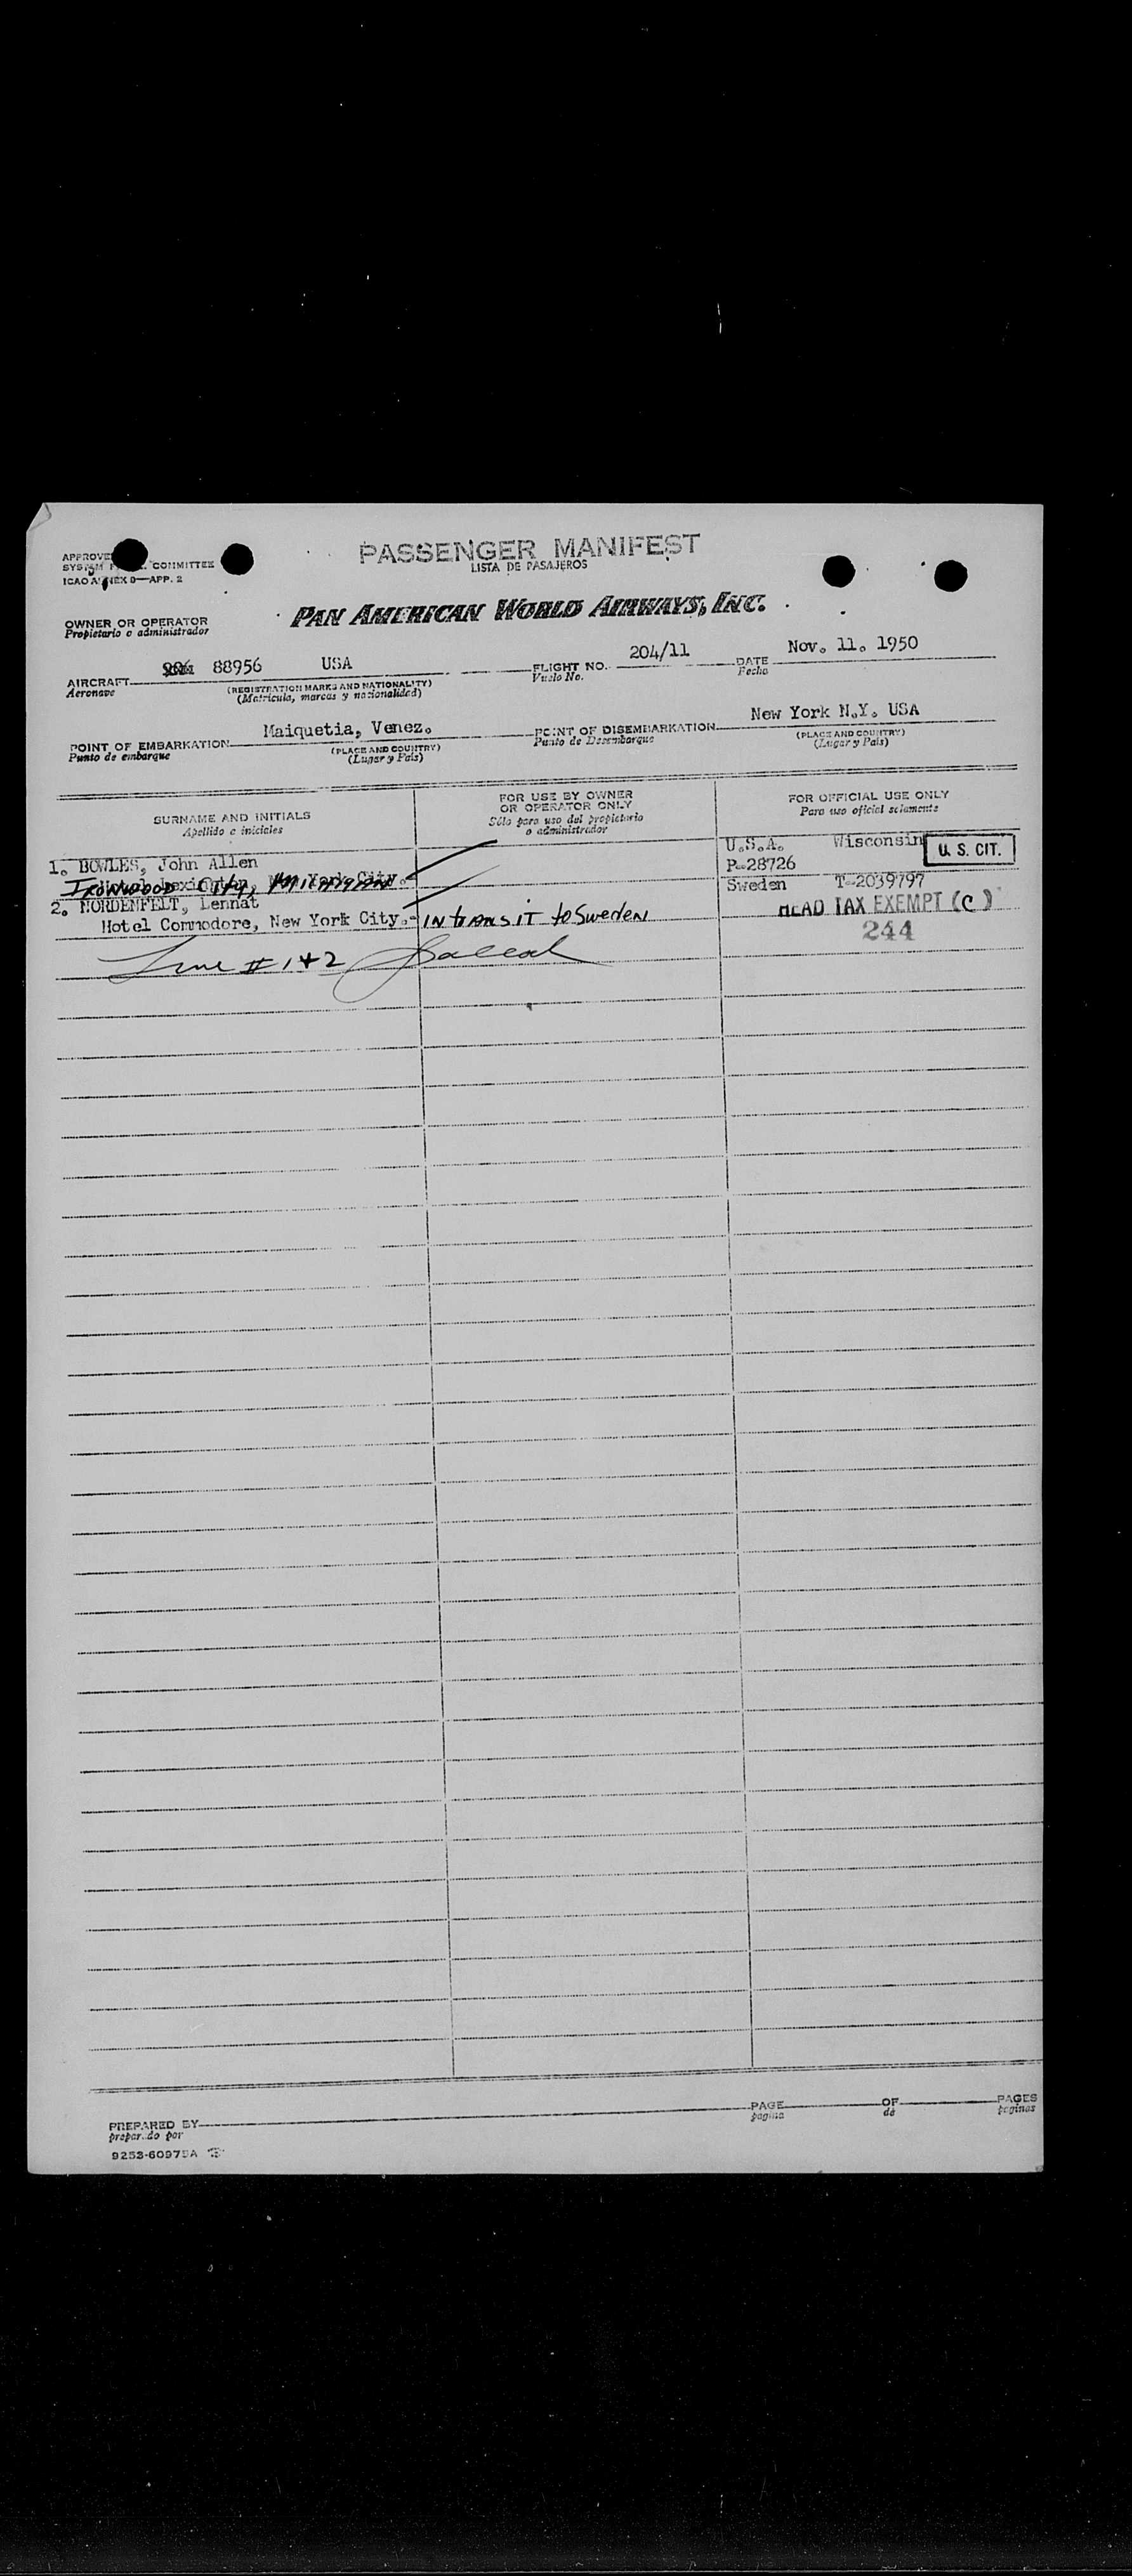 PASSENGER MANIFEST
LISTA DE PASAJEROS
COMMITTEE
ICAO ANNEX 9—APP. 2
PAN AMERICAN WORLD AIRWAYS, INC.
OWNER OR OPERATOR
Propietario o administrador
AIRCRAFT 88956 USA
Aeronave
(REGISTRATION MARKS AND NATIONALITY)
(Matrícula, marcas y nacionalidad)
FLIGHT NO. 204/11
Vuelo No.
DATE Nov. 11. 1950
Fecha
POINT OF EMBARKATION Maiquetia, Venez.
Punto de embarque
(PLACE AND COUNTRY)
(Lugar y País)
POINT OF DISEMBARKATION New York N.Y. USA
Punto de Desembarque
(PLACE AND COUNTRY)
(Lugar y País)
SURNAME AND INITIALS
Apellido e iniciales
FOR USE BY OWNER
OR OPERATOR ONLY
Sólo para uso del propietario
o administrador
FOR OFFICIAL USE ONLY
Para uso oficial solamente
1. BOWLES, John Allen U.S.A. Wisconsin U. S. CIT.
P-28726
Ironwood City, Michigan
2. NORDENFELT, Lennat Sweden T-2039797
Hotel Commodore, New York City.- IN transit to Sweden HEAD TAX EXEMPT (C)
244
Line # 1+2
PREPARED BY
preparado por
PAGE OF PAGES
página de páginas
9253-60975A